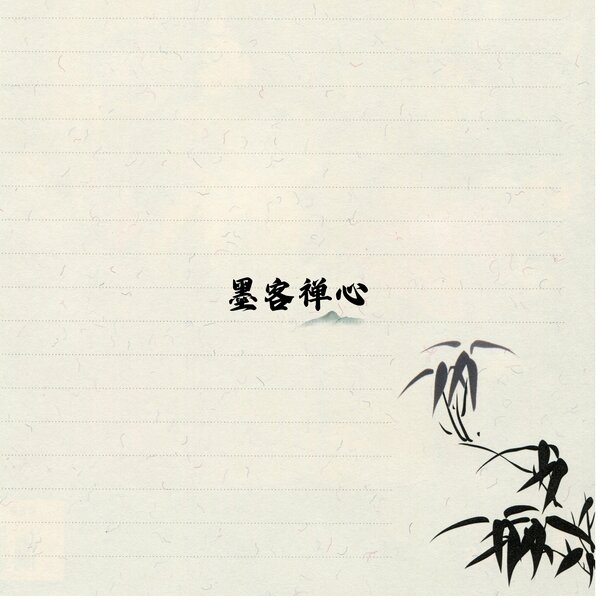 墨客禅心